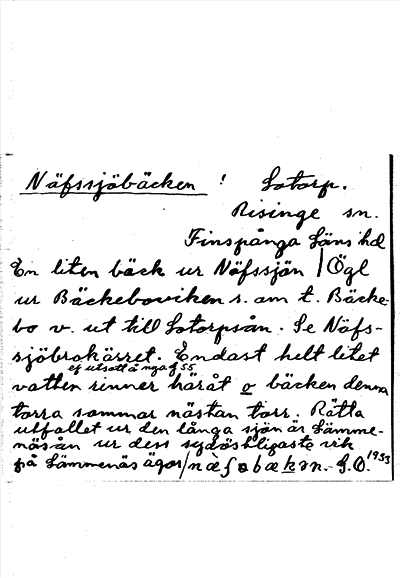 Näfssjöbäcken ! Lotorp.
Risinge sn.
Finspånga läns hd
En liten bäck ur Näfssjön / Ögl
ur Bäckeboviken s. om t. Bäcke-
bo v. ut till Lotorpsån. Se Näfs-
sjöbrokärret. Endast helt litet
ej utsatt å nya f 55
vatten rinner häråt o bäcken denna
torra sommar nästan torr. Rätta
utfallet ur den långa sjön är Lämme-
näsån ur dess sydöstligaste vik
på Lämmenäs ägor / G.O. 1933